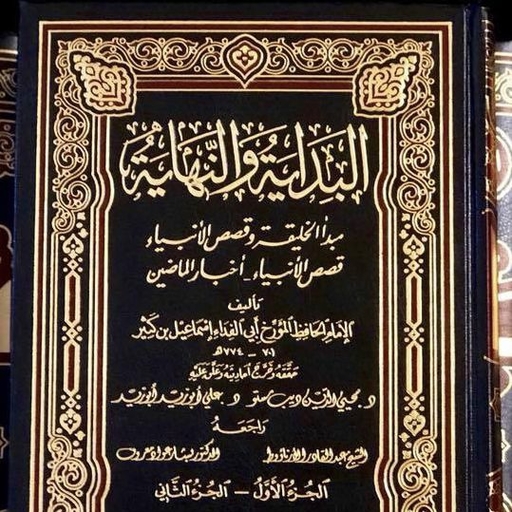 البِدَايَة وَالنِّهَايَة
مبدأ الخليقة وقصص الأنبياء
قصص الأنبياء - أخبار الماضين
تأليف
الإمام الحافظ المؤرخ أبي الفداء إسماعيل بن كثير
٧٠١ - ٧٧٤هـ
حققه وخرج أحاديثه وعلق عليه
د. محيي الدين ديب مستو د. علي أبو زيد أبو زيد
راجعه
الشيخ عبد القادر الأرناؤوط الدكتور بشار عواد معروف
الجزء الأول - الجزء الثاني